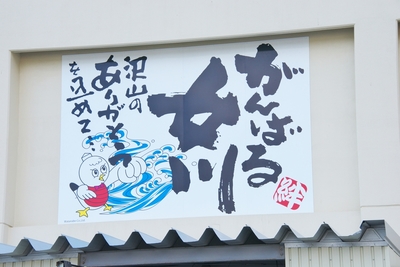 がんばる
女川
沢山の
ありがとう
を込めて…
絆